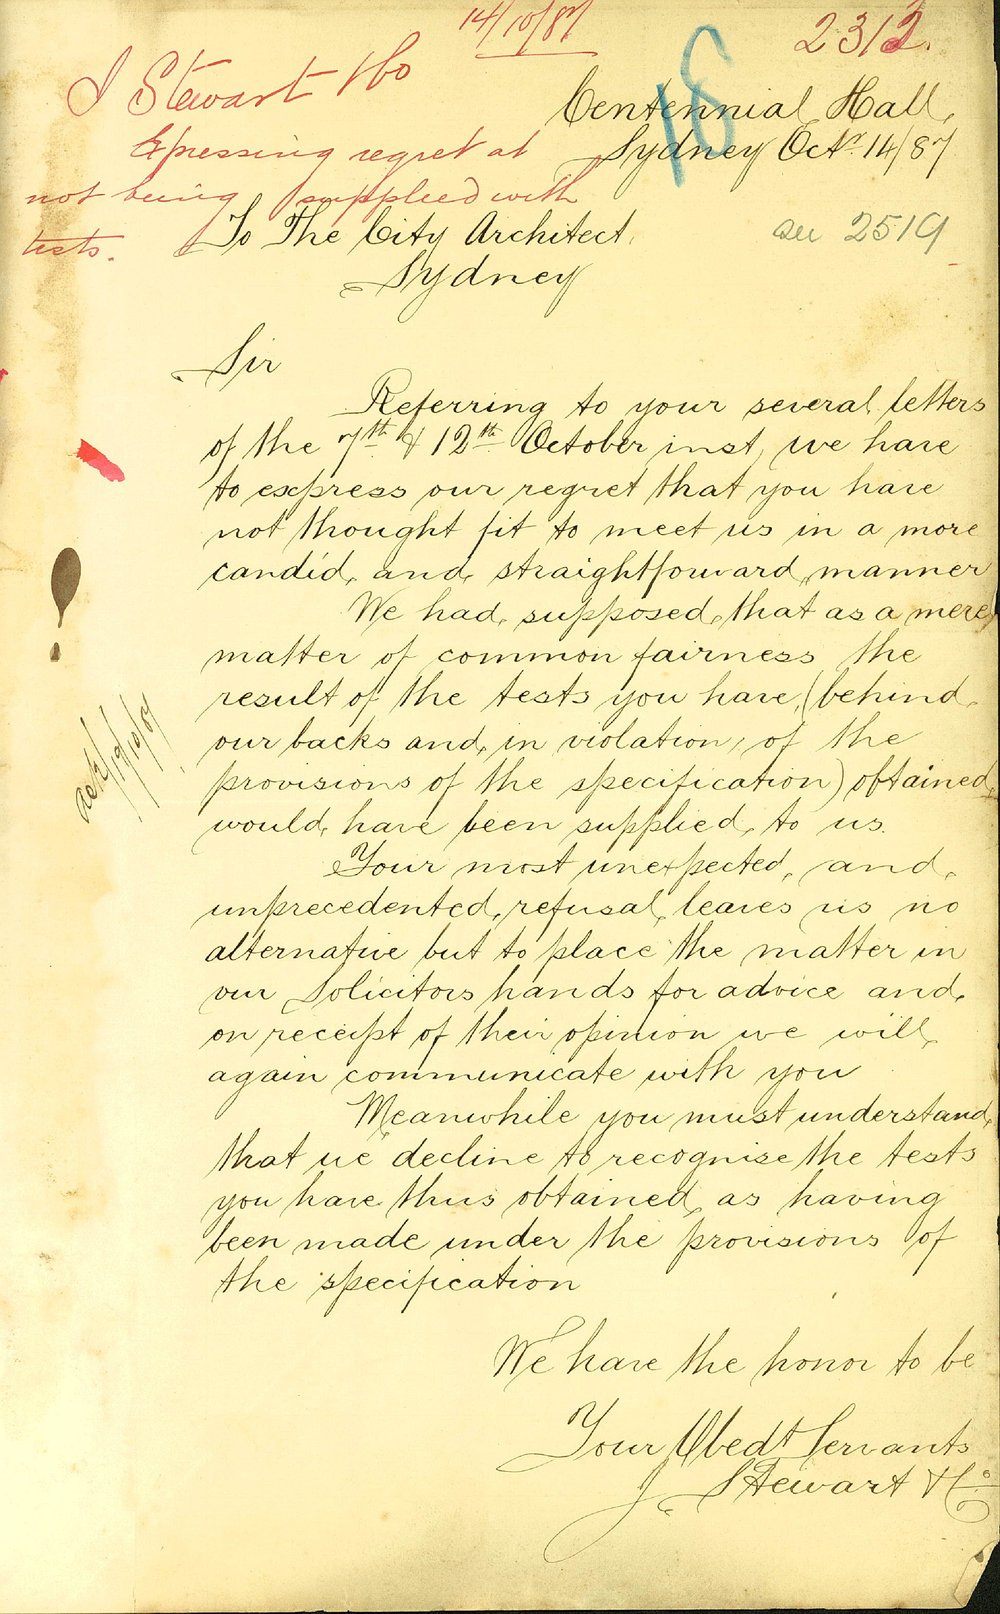 14/10/87
2312.
J Stewart & Co
Expressing regret at
not being supplied with
tests.
18
Centennial Hall,
Sydney Octr 14/87
To The City Architect.
Sydney
see 2519
Sir
Referring to your several letters
of the 7th & 12th October inst, we have
to express our regret that you have
not thought fit to meet us in a more
candid, and, straightforward, manner
We had, supposed, that as a mere
matter of common fairness the
result of the tests you have, (behind
our backs and, in violation, of the
provisions of the specification) obtained,
would, have been supplied, to us.
Your most unexpected, and,
unprecedented, refusal, leaves us no
alternative but to place the matter in
our Solicitors hands for advice and,
on receipt of their opinion we will
again communicate with you
Meanwhile you must understand,
that we decline to recognise the tests
you have thus obtained, as having
been made under the provisions of
the specification
We have the honor to be
Your Obedt Servants
J. Stewart & Co